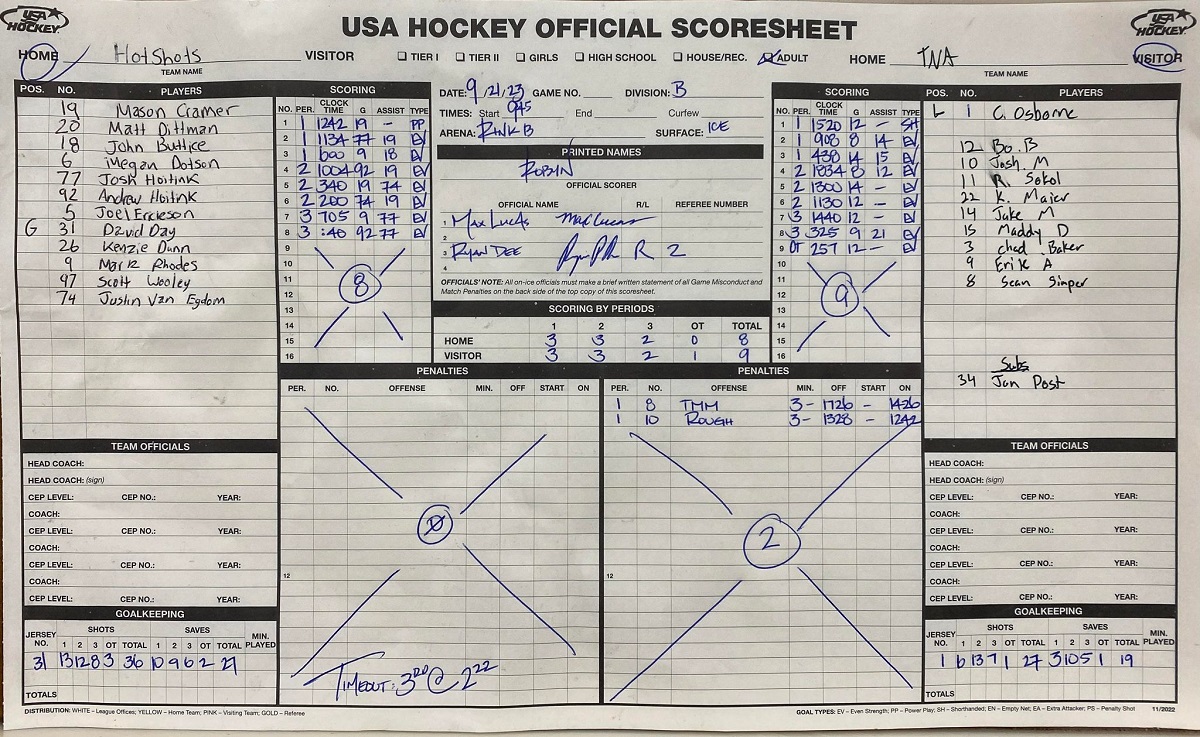 USA HOCKEY
USA HOCKEY OFFICIAL SCORESHEET
USA HOCKEY
HOME HotShots VISITOR TIER I TIER II GIRLS HIGH SCHOOL HOUSE/REC. ADULT HOME TNA VISITOR
TEAM NAME TEAM NAME
POS. NO. PLAYERS
19 Mason Cramer
20 Matt Dittman
18 John Buttice
6 Megan Dotson
77 Josh Hoitink
92 Andrew Hoitink
5 Joel Erickson
G 31 David Day
26 Kenzie Dunn
9 Mark Rhodes
97 Scott Wooley
74 Justin Van Egdom
SCORING
NO. PER. CLOCK TIME G ASSIST TYPE
1 1 1242 19 - PP
2 1 1134 77 19 EV
3 1 600 9 18 EV
4 2 1004 92 19 EV
5 2 340 19 74 EV
6 2 200 74 19 EV
7 3 705 9 77 EV
8 3 :40 92 77 EV
9
10
11
12
13
14
15
16
8
DATE: 9/21/23 GAME NO. DIVISION: B
TIMES: Start 945 End Curfew
ARENA: RINK B SURFACE: ICE
PRINTED NAMES
ROBIN
OFFICIAL SCORER
OFFICIAL NAME R/L REFEREE NUMBER
1 Max Lucas Max Lucas
2
3 RYAN DEE R 2
4
OFFICIALS' NOTE: All on-ice officials must make a brief written statement of all Game Misconduct and
Match Penalties on the back side of the top copy of this scoresheet.
SCORING BY PERIODS
1 2 3 OT TOTAL
HOME 3 3 2 0 8
VISITOR 3 3 2 1 9
SCORING
NO. PER. CLOCK TIME G ASSIST TYPE
1 1 1520 12 - SH
2 1 908 8 14 EV
3 1 438 14 15 EV
4 2 1834 8 12 EV
5 2 1300 14 - EV
6 2 1130 12 - EV
7 3 1440 12 - EV
8 3 325 9 21 EV
9 OT 257 12 - EV
10
11
12
13
14
15
16
9
POS. NO. PLAYERS
1 C. Osborne
12 Bo. B
10 Josh. M
11 R. Sokol
22 K. Maier
14 Jake M
15 Maddy D
3 Chad Baker
9 Erik A
8 Sean Simper
Subs
34 Jon Post
PENALTIES
PER. NO. OFFENSE MIN. OFF START ON
12
0
TIMEOUT: 3RD @ 2 22
PENALTIES
PER. NO. OFFENSE MIN. OFF START ON
1 8 TMM 3- 1726 - 1426
1 10 ROUGH 3- 1328 - 1242
12
2
TEAM OFFICIALS
HEAD COACH:
HEAD COACH: (sign)
CEP LEVEL: CEP NO.: YEAR:
COACH:
CEP LEVEL: CEP NO.: YEAR:
COACH:
CEP LEVEL: CEP NO.: YEAR:
COACH:
CEP LEVEL: CEP NO.: YEAR:
GOALKEEPING
JERSEY NO. SHOTS SAVES MIN. PLAYED
1 2 3 OT TOTAL 1 2 3 OT TOTAL
31 13 12 8 3 36 10 9 6 2 27
TOTALS
TEAM OFFICIALS
HEAD COACH:
HEAD COACH: (sign)
CEP LEVEL: CEP NO.: YEAR:
COACH:
CEP LEVEL: CEP NO.: YEAR:
COACH:
CEP LEVEL: CEP NO.: YEAR:
COACH:
CEP LEVEL: CEP NO.: YEAR:
GOALKEEPING
JERSEY NO. SHOTS SAVES MIN. PLAYED
1 2 3 OT TOTAL 1 2 3 OT TOTAL
1 6 13 7 1 27 3 10 5 1 19
TOTALS
DISTRIBUTION: WHITE – League Offices; YELLOW – Home Team; PINK – Visiting Team; GOLD – Referee
GOAL TYPES: EV – Even Strength; PP – Power Play; SH – Shorthanded; EN – Empty Net; EA – Extra Attacker; PS – Penalty Shot 11/2022